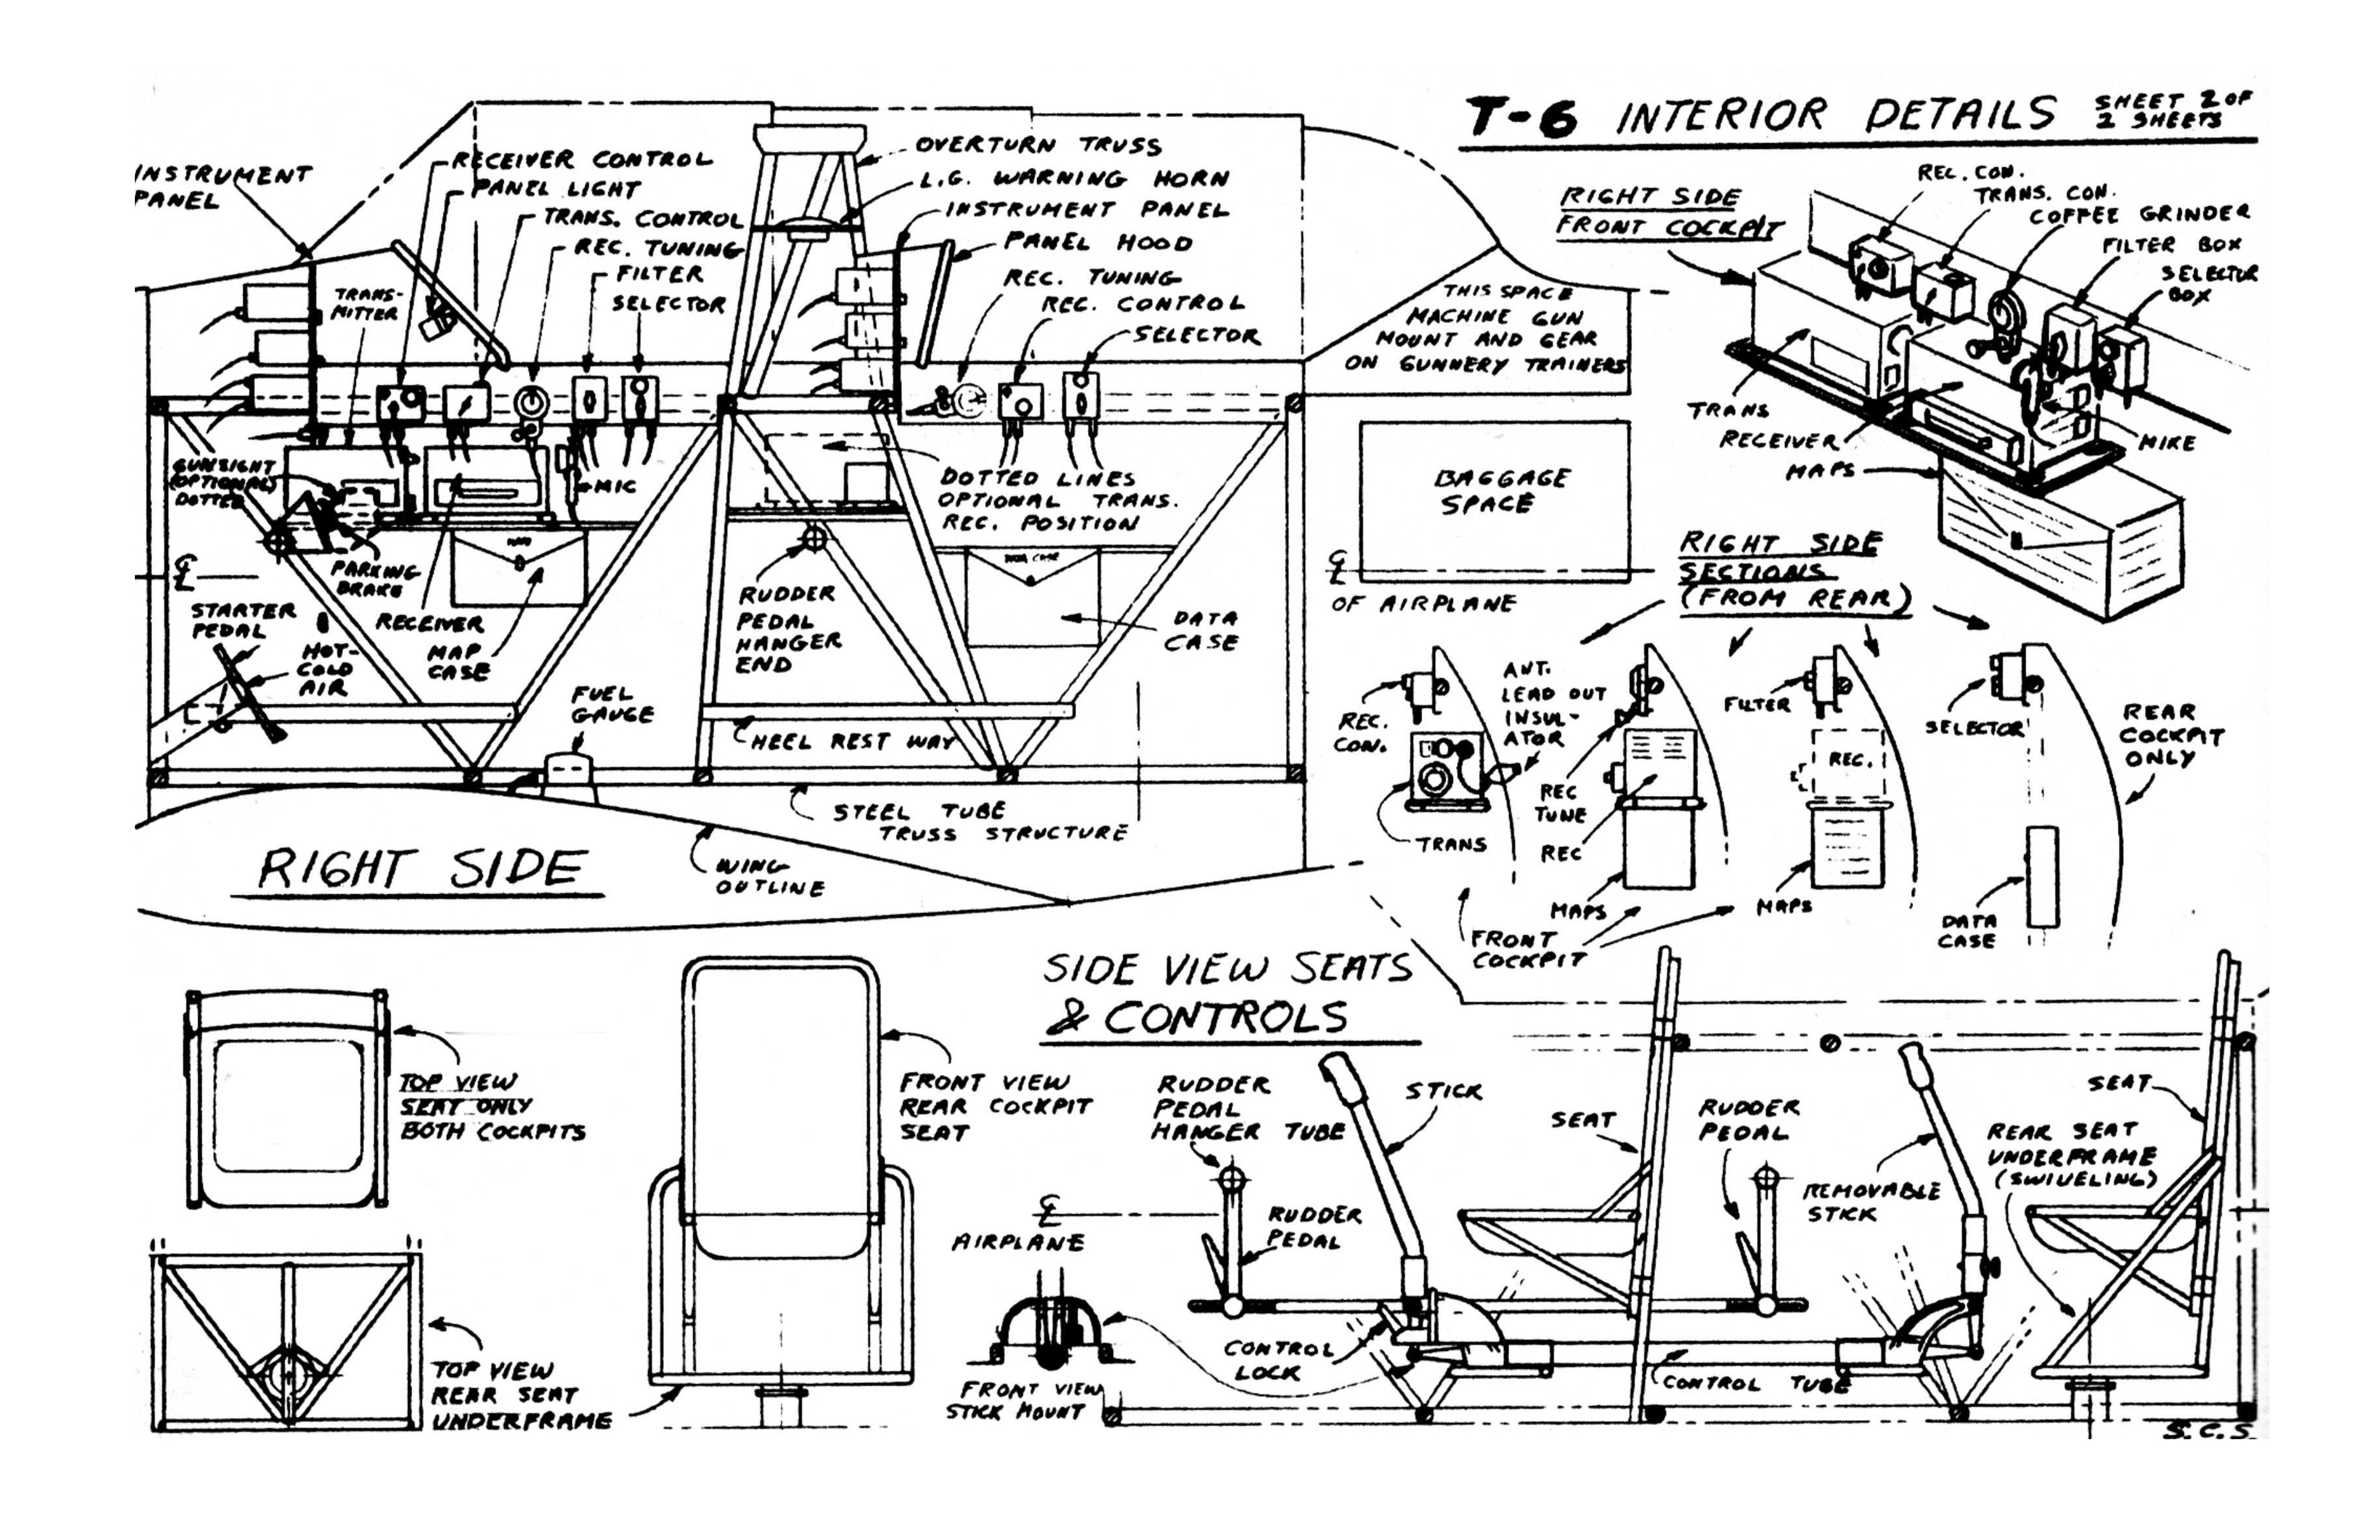 T-6 INTERIOR DETAILS
SHEET 2 OF
2 SHEETS
INSTRUMENT
PANEL
RECEIVER CONTROL
PANEL LIGHT
TRANS. CONTROL
REC. TUNING
FILTER
SELECTOR
TRANS-
MITTER
OVERTURN TRUSS
L.G. WARNING HORN
INSTRUMENT PANEL
PANEL HOOD
REC. TUNING
REC. CONTROL
SELECTOR
THIS SPACE
MACHINE GUN
MOUNT AND GEAR
ON GUNNERY TRAINERS
GUNSIGHT
(OPTIONAL)
DOTTED
MIC
DOTTED LINES
OPTIONAL TRANS.
REC. POSITION
BAGGAGE
SPACE
℄
OF AIRPLANE
℄
PARKING
BRAKE
STARTER
PEDAL
HOT-
COLD
AIR
RECEIVER
MAP
CASE
MAPS
DATA CASE
RUDDER
PEDAL
HANGER
END
DATA
CASE
FUEL
GAUGE
HEEL REST WAY
STEEL TUBE
TRUSS STRUCTURE
WING
OUTLINE
RIGHT SIDE
RIGHT SIDE
FRONT COCKPIT
REC. CON.
TRANS. CON.
COFFEE GRINDER
FILTER BOX
SELECTOR
BOX
TRANS
RECEIVER
MAPS
MIKE
RIGHT SIDE
SECTIONS
(FROM REAR)
REC.
CON.
ANT.
LEAD OUT
INSUL-
ATOR
TRANS
REC
TUNE
REC
MAPS
FILTER
REC.
MAPS
SELECTOR
REAR
COCKPIT
ONLY
DATA
CASE
FRONT
COCKPIT
SIDE VIEW SEATS
& CONTROLS
TOP VIEW
SEAT ONLY
BOTH COCKPITS
FRONT VIEW
REAR COCKPIT
SEAT
TOP VIEW
REAR SEAT
UNDERFRAME
RUDDER
PEDAL
HANGER TUBE
STICK
SEAT
RUDDER
PEDAL
REMOVABLE
STICK
SEAT
REAR SEAT
UNDERFRAME
(SWIVELING)
℄
AIRPLANE
RUDDER
PEDAL
CONTROL
LOCK
FRONT VIEW
STICK MOUNT
CONTROL TUBE
S.C.S.